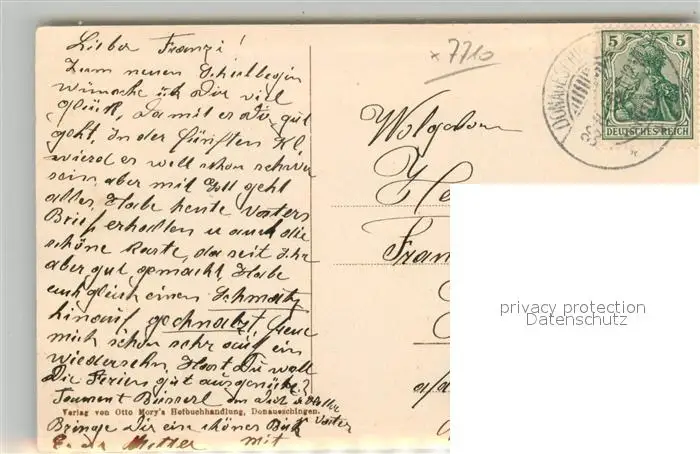 Lieber Franzi!
Zum neuen Schulbegin
wünsche ich Dir viel
glück, Damit es Dir gut
geht. In der fünften Kl.
wierd es woll schon schwer
sein aber mit Gott geht
alles. Habe heute Vaters
Brief erhalten u auch die
schöne Karte, da seit Ihr
aber gut gemacht. Habe
euch gleich einen Schmatz
hinauf geschmatzt, freue
mich schon sehr auf ein
wiedersehn. Hast Du woll
Die Ferien gut ausgenützt?
Tausent Busserl an Dich u
Verlag von Otto Mory's Hofbuchhandlung, Donaueschingen.
Vater
Bringe Dir ein schönes Buch
Mutter mit
x 7710
Wolgeborn
He
Fran
a/d
5 5
DEUTSCHES REICH
DONAUESCHI
privacy protection
Datenschutz